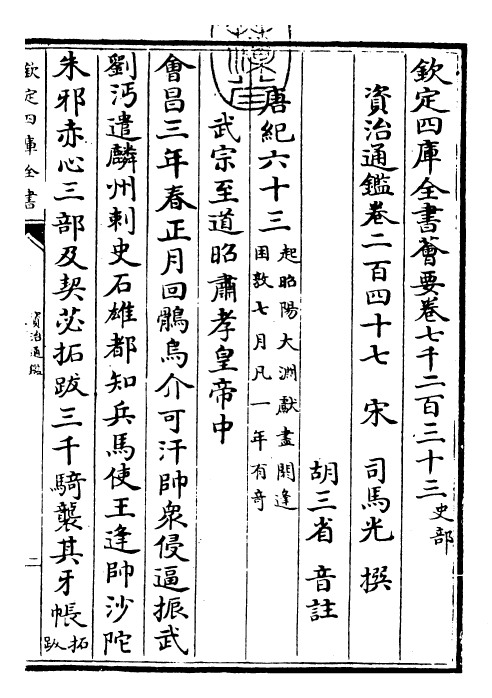 欽定四庫全書薈要卷七千二百三十三史部
資治通鑑卷二百四十七　宋　司馬光　撰
胡三省　音註
唐紀六十三起昭陽大淵獻盡閼逢困敦七月凡一年有奇
武宗至道昭肅孝皇帝中
會昌三年春正月回鶻烏介可汗帥衆侵逼振武
劉沔遣麟州刺史石雄都知兵馬使王逢帥沙陀
朱邪赤心三部及契苾拓跋三千騎襲其牙帳拓跋
欽定四庫全書
資治通鑑